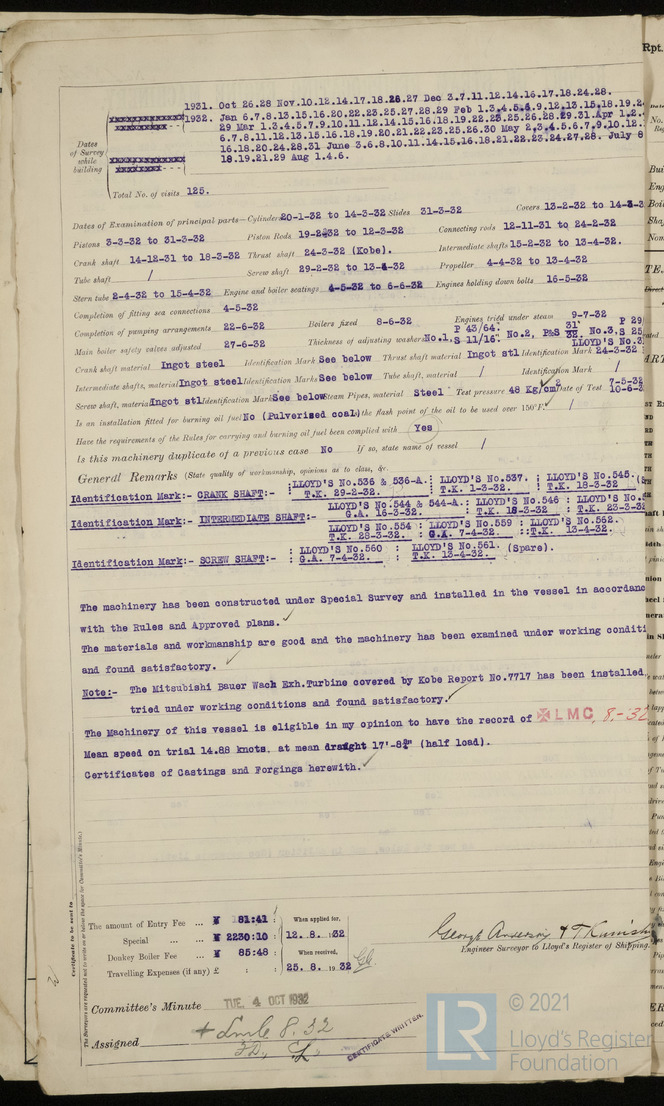 1931. Oct 26.28 Nov.10.12.14.17.18.28.27 Dec 3.7.11.12.14.16.17.18.24.28.
1932. Jan 6.7.8.13.15.16.20.22.23.25.27.28.29 Feb 1.3.4.5.6.9.12.13.15.18.19.2
29 Mar 1.3.4.5.7.9.10.11.12.14.15.16.18.19.22.23.25.26.28.29.31.Apr 1.2.
6.7.8.11.12.13.15.16.18.19.20.21.22.23.25.26.30 May 2.3.4.5.6.7.9.10.12.
16.18.20.24.28.31 June 3.6.8.10.11.14.15.16.18.21.22.23.24.27.28. July 8
18.19.21.29 Aug 1.4.6.
Dates of Survey while building
Total No. of visits 125.
Dates of Examination of principal parts—Cylinders 20-1-32 to 14-3-32 Slides 31-3-32 Covers 13-2-32 to 14-3-3
Pistons 3-3-32 to 31-3-32 Piston Rods 19-2-32 to 12-3-32 Connecting rods 12-11-31 to 24-2-32
Crank shaft 14-12-31 to 18-3-32 Thrust shaft 24-3-32 (Kobe). Intermediate shafts 15-2-32 to 13-4-32.
Tube shaft / Screw shaft 29-2-32 to 13-4-32 Propeller 4-4-32 to 13-4-32
Stern tube 2-4-32 to 15-4-32 Engine and boiler seatings 4-5-32 to 6-6-32 Engines holding down bolts 16-5-32
Completion of fitting sea connections 4-5-32
Completion of pumping arrangements 22-6-32 Boilers fixed 8-6-32 Engines tried under steam 9-7-32
Main boiler safety valves adjusted 27-6-32 Thickness of adjusting washers No.1. P 43/64. S 11/16. No.2, P&S 31/32. No.3. P 29 S 25
Crank shaft material Ingot steel Identification Mark See below Thrust shaft material Ingot stl Identification Mark LLOYD'S No.3 24-3-32
Intermediate shafts, material Ingot steel Identification Marks See below Tube shaft, material / Identification Mark /
Screw shaft, material Ingot stl Identification Mark See below Steam Pipes, material Steel Test pressure 48 Kg/cm2 Date of Test 7-5-32 10-6-3
Is an installation fitted for burning oil fuel No (Pulverised coal) the flash point of the oil to be used over 150°F. /
Have the requirements of the Rules for carrying and burning oil fuel been complied with Yes
Is this machinery duplicate of a previous case No If so, state name of vessel /
General Remarks (State quality of workmanship, opinions as to class, &c.
Identification Mark:- CRANK SHAFT:- : LLOYD'S No.536 & 536-A. : LLOYD'S No.537. : LLOYD'S No.545.
: T.K. 29-2-32. : T.K. 1-3-32. : T.K. 18-3-32
Identification Mark:- INTERMEDIATE SHAFT:- LLOYD'S No.544 & 544-A. : LLOYD'S No.546 : LLOYD'S No.
G.A. 16-3-32. : T.K. 18-3-32 : T.K. 23-3-3
LLOYD'S No.554 : LLOYD'S No.559 : LLOYD'S No.562.
T.K. 28-3-32. : G.A. 7-4-32. : T.K. 13-4-32.
Identification Mark:- SCREW SHAFT:- : LLOYD'S No.560 : LLOYD'S No.561. (Spare).
: G.A. 7-4-32. : T.K. 13-4-32.
The machinery has been constructed under Special Survey and installed in the vessel in accordanc
with the Rules and Approved plans.
The materials and workmanship are good and the machinery has been examined under working conditi
and found satisfactory.
Note:- The Mitsubishi Bauer Wach Exh.Turbine covered by Kobe Report No.7717 has been installed
tried under working conditions and found satisfactory.
The Machinery of this vessel is eligible in my opinion to have the record of ✠LMC, 8-32
Mean speed on trial 14.88 knots. at mean draught 17'-8¾" (half load).
Certificates of Castings and Forgings herewith.
Certificate to be sent to
The Surveyors are requested not to write on or below the space for Committee's Minute.
The amount of Entry Fee ... ¥ 81:41 : When applied for,
Special ... ... ¥ 2230:10 : 12. 8. 1932
Donkey Boiler Fee ... ¥ 85:48 : When received,
Travelling Expenses (if any) £ : : 25. 8. 1932
George Anderson & T Kunish
Engineer Surveyor to Lloyd's Register of Shipping.
Committee's Minute TUE. 4 OCT 1932
Assigned + Lmc 8.32
F.D., CL
CERTIFICATE WRITTEN
LR © 2021
Lloyd's Register
Foundation
Rpt.